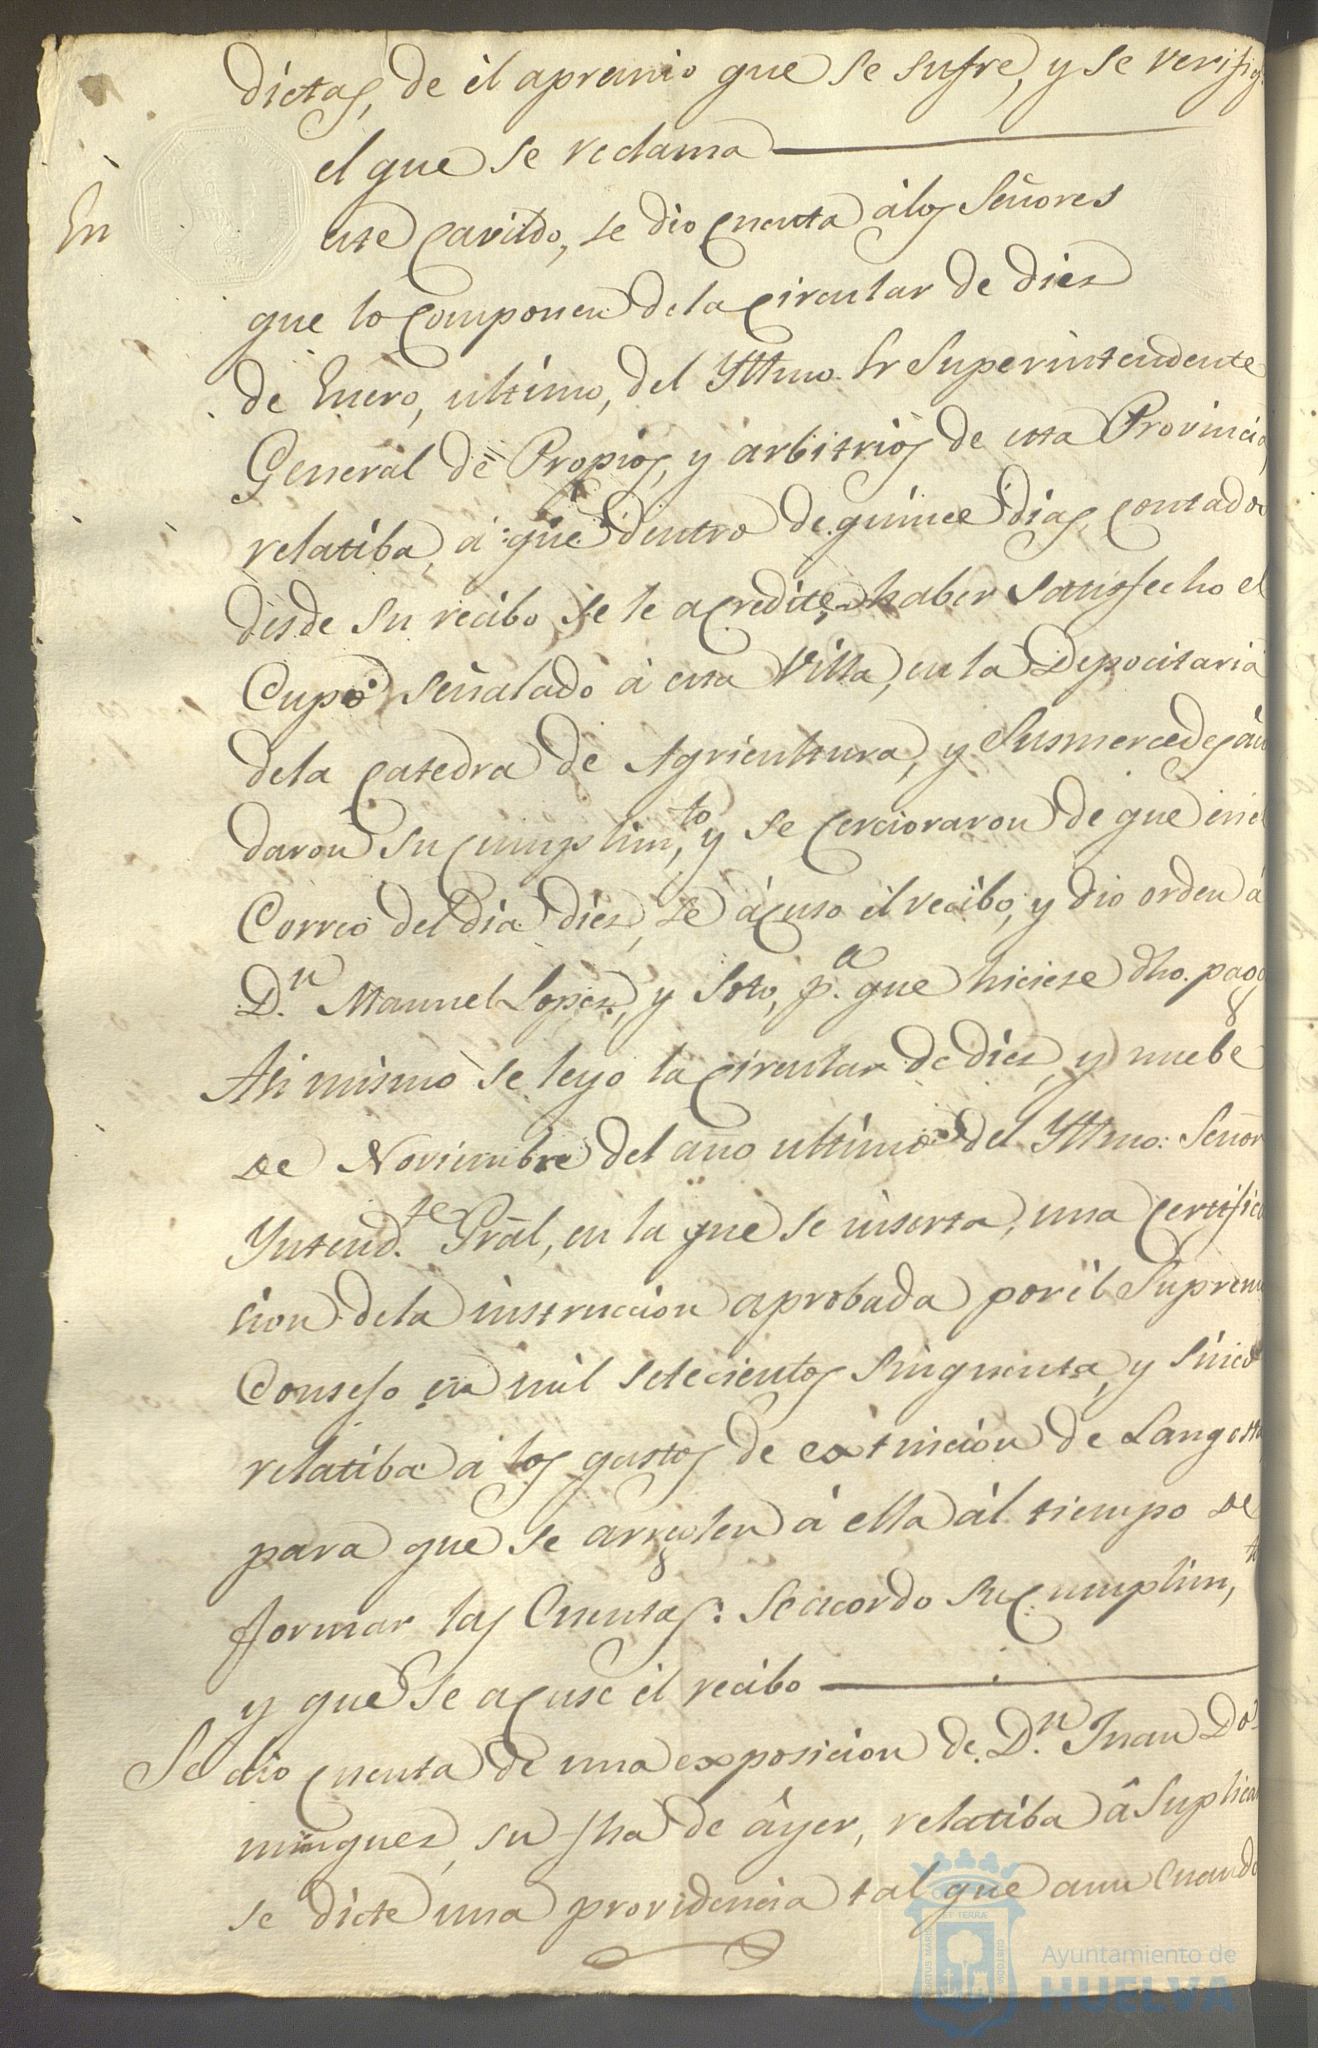 dictas, de èl apremio que se sufre, y se verifiq.
el que se reclama
En este Cavildo, se dio Cuenta àlos Señores
que lo Componen dela Circular de diez
de Enero, ultimo, del Yltmo. Sr Superintendente
General de Propios, y arbitrios de esta Provincia,
relatiba, à que dentro de quince dias, contados
desde su recibo se le acredite, haber satisfecho el
Cupo señalado à esta Villa, en la Depocitaria
dela Catedra de Agricultura, y Susmercedes àn
daron su Cumplim,to y se Cercioraron de que en el
Correo del dia diez, se àcuso èl recibo, y dio orden à
D.n Manuel Lopez, y Soto, p.a que hiciese dho. pago
Asi mismo se leyo la Circular de diez, y nuebe
de Noviembre del año ultimo del Yltmo: Señor
Yntend.te Gràl, en la que se inserta, una Certifica
cion dela instruccion aprobada por èl Supremo
Consejo en mil setecientos Sinquenta, y Sinco
relatiba à los gastos de extincion de Langosta
para que se arreglen à ella àl tiempo de
formar las Cuentas: Se acordo su Cumplim,to
y que se acuse èl recibo
Se dio Cuenta de una exposicion de D.n Juan Do
minguez, su fha de àyer, relatiba â Suplicar
se dicte una providencia tal que aun Cuando
PORTUS MARIS ET TERRÆ CUSTODIA
Ayuntamiento de
HUELVA